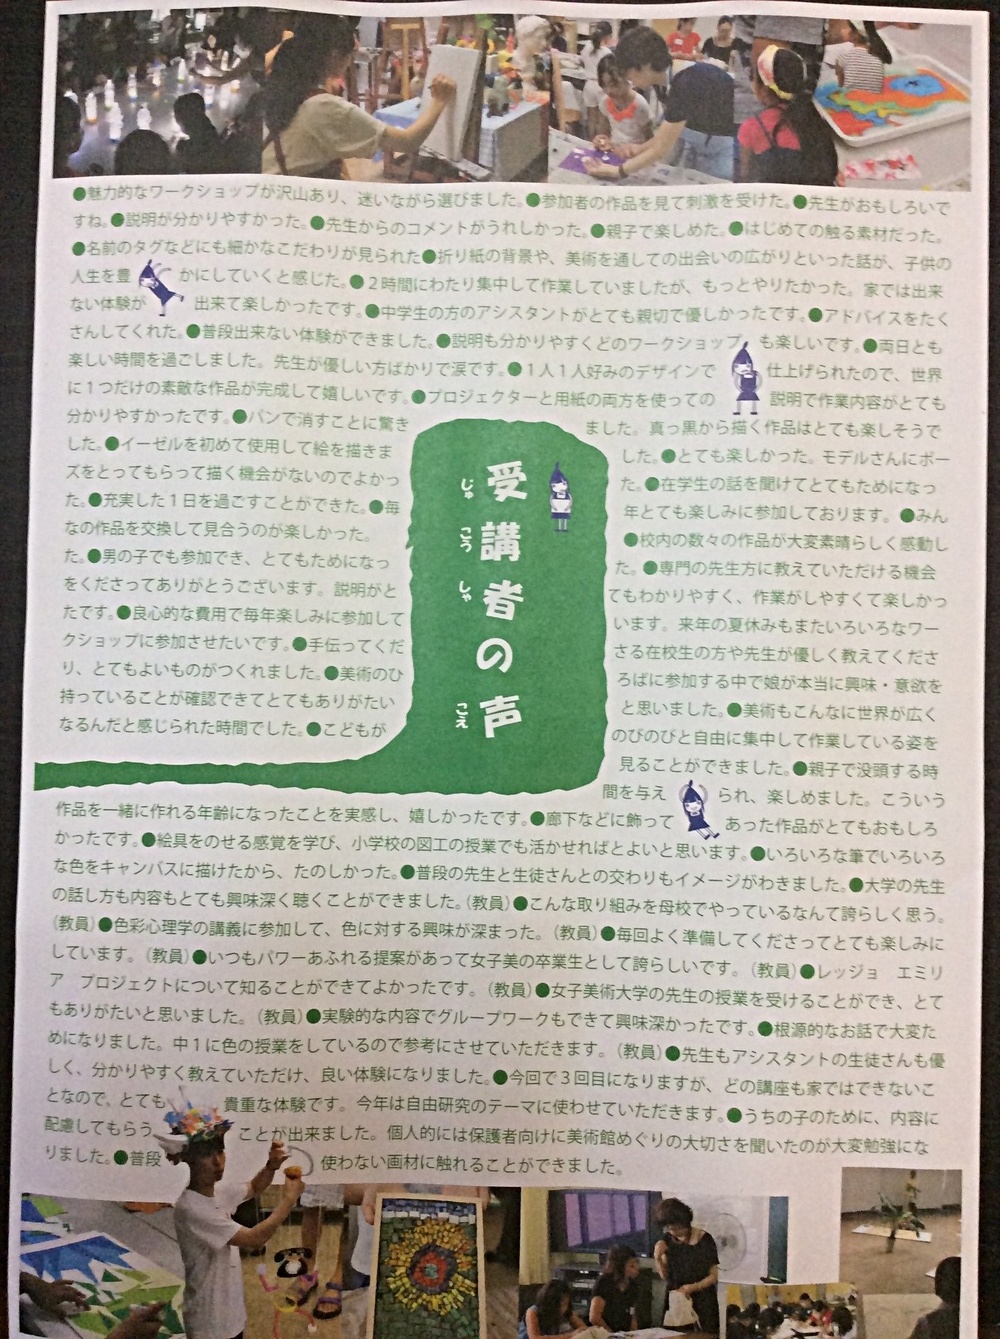 ●魅力的なワークショップが沢山あり、迷いながら選びました。●参加者の作品を見て刺激を受けた。●先生がおもしろいで
すね。●説明が分かりやすかった。●先生からのコメントがうれしかった。●親子で楽しめた。●はじめての触る素材だった。
●名前のタグなどにも細かなこだわりが見られた●折り紙の背景や、美術を通しての出会いの広がりといった話が、子供の
人生を豊かにしていくと感じた。●２時間にわたり集中して作業していましたが、もっとやりたかった。家では出来
ない体験が出来て楽しかったです。●中学生の方のアシスタントがとても親切で優しかったです。●アドバイスをたく
さんしてくれた。●普段出来ない体験ができました。●説明も分かりやすくどのワークショップも楽しいです。●両日とも
楽しい時間を過ごしました。先生が優しい方ばかりで涙です。●１人１人好みのデザインで仕上げられたので、世界
に１つだけの素敵な作品が完成して嬉しいです。●プロジェクターと用紙の両方を使っての説明で作業内容がとても
分かりやすかったです。●パンで消すことに驚きました。真っ黒から描く作品はとても楽しそうで
した。●イーゼルを初めて使用して絵を描きました。●とても楽しかった。モデルさんにポー
ズをとってもらって描く機会がないのでよかった。●在学生の話を聞けてとてもためになっ
た。●充実した１日を過ごすことができた。●毎年とても楽しみに参加しております。●みん
なの作品を交換して見合うのが楽しかった。●校内の数々の作品が大変素晴らしく感動し
た。●男の子でも参加でき、とてもためになった。●専門の先生方に教えていただける機会
をくださってありがとうございます。説明がとてもわかりやすく、作業がしやすくて楽しかっ
たです。●良心的な費用で毎年楽しみに参加しています。来年の夏休みもまたいろいろなワー
クショップに参加させたいです。●手伝ってくださる在校生の方や先生が優しく教えてくださ
り、とてもよいものがつくれました。●美術のひろばに参加する中で娘が本当に興味・意欲を
持っていることが確認できてとてもありがたいと思いました。●美術もこんなに世界が広く
なるんだと感じられた時間でした。●こどもがのびのびと自由に集中して作業している姿を
見ることができました。●親子で没頭する時
間を与えられ、楽しめました。こういう
作品を一緒に作れる年齢になったことを実感し、嬉しかったです。●廊下などに飾ってあった作品がとてもおもしろ
かったです。●絵具をのせる感覚を学び、小学校の図工の授業でも活かせればとよいと思います。●いろいろな筆でいろいろ
な色をキャンバスに描けたから、たのしかった。●普段の先生と生徒さんとの交わりもイメージがわきました。●大学の先生
の話し方も内容もとても興味深く聴くことができました。（教員）●こんな取り組みを母校でやっているなんて誇らしく思う。
（教員）●色彩心理学の講義に参加して、色に対する興味が深まった。（教員）●毎回よく準備してくださってとても楽しみに
しています。（教員）●いつもパワーあふれる提案があって女子美の卒業生として誇らしいです。（教員）●レッジョ　エミリ
ア　プロジェクトについて知ることができてよかったです。（教員）●女子美術大学の先生の授業を受けることができ、とて
もありがたいと思いました。（教員）●実験的な内容でグループワークもできて興味深かったです。●根源的なお話で大変た
めになりました。中１に色の授業をしているので参考にさせていただきます。（教員）●先生もアシスタントの生徒さんも優
しく、分かりやすく教えていただけ、良い体験になりました。●今回で３回目になりますが、どの講座も家ではできないこ
となので、とても貴重な体験です。今年は自由研究のテーマに使わせていただきます。●うちの子のために、内容に
配慮してもらうことが出来ました。個人的には保護者向けに美術館めぐりの大切さを聞いたのが大変勉強にな
りました。●普段使わない画材に触れることができました。
受講者の声
じゅ こう しゃ こえ